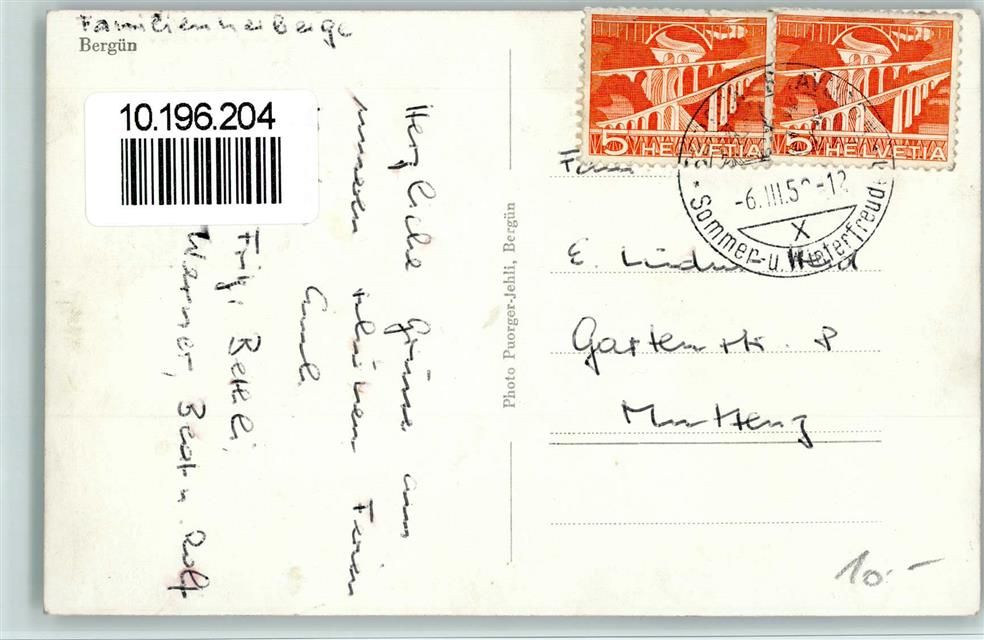 Familienherberge
Bergün
10.196.204
Herzliche Grüsse aus
unseren schönen Ferien
Fritz, Bethli,
Werner, Beat u. Rolf
Photo Puorger-Jehli, Bergün
5 HELVETIA
5 HELVETIA
-6.III.5 -12
X
Sommer- u. Winterfreud
E.
Gartenstr. 8
Muttenz
10.-